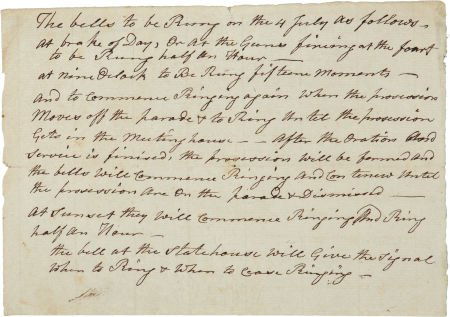 The bells to be Rung on the 4 July as follows -
at brake of Day, Or at the Guns firing at the foart
to be Rung half an Hour -
at nine Oclock to Be Rung fifteen Moments -
and to Commence Ringing again when the prosession
Moves off the parade & to Ring Untel the prosession
Gets in the Meeting house - - After the Oration And
Service is finised, the prosession will be formed And
the bells will Commence Ringing And Contenew Until
the prosession Are On the parade & Dismissed -
at Sunset they will Commence Ringing And Ring
half An Hour -
the bell at the Statehouse will Give the Signal
when to Ring & When to Cease Ringing -